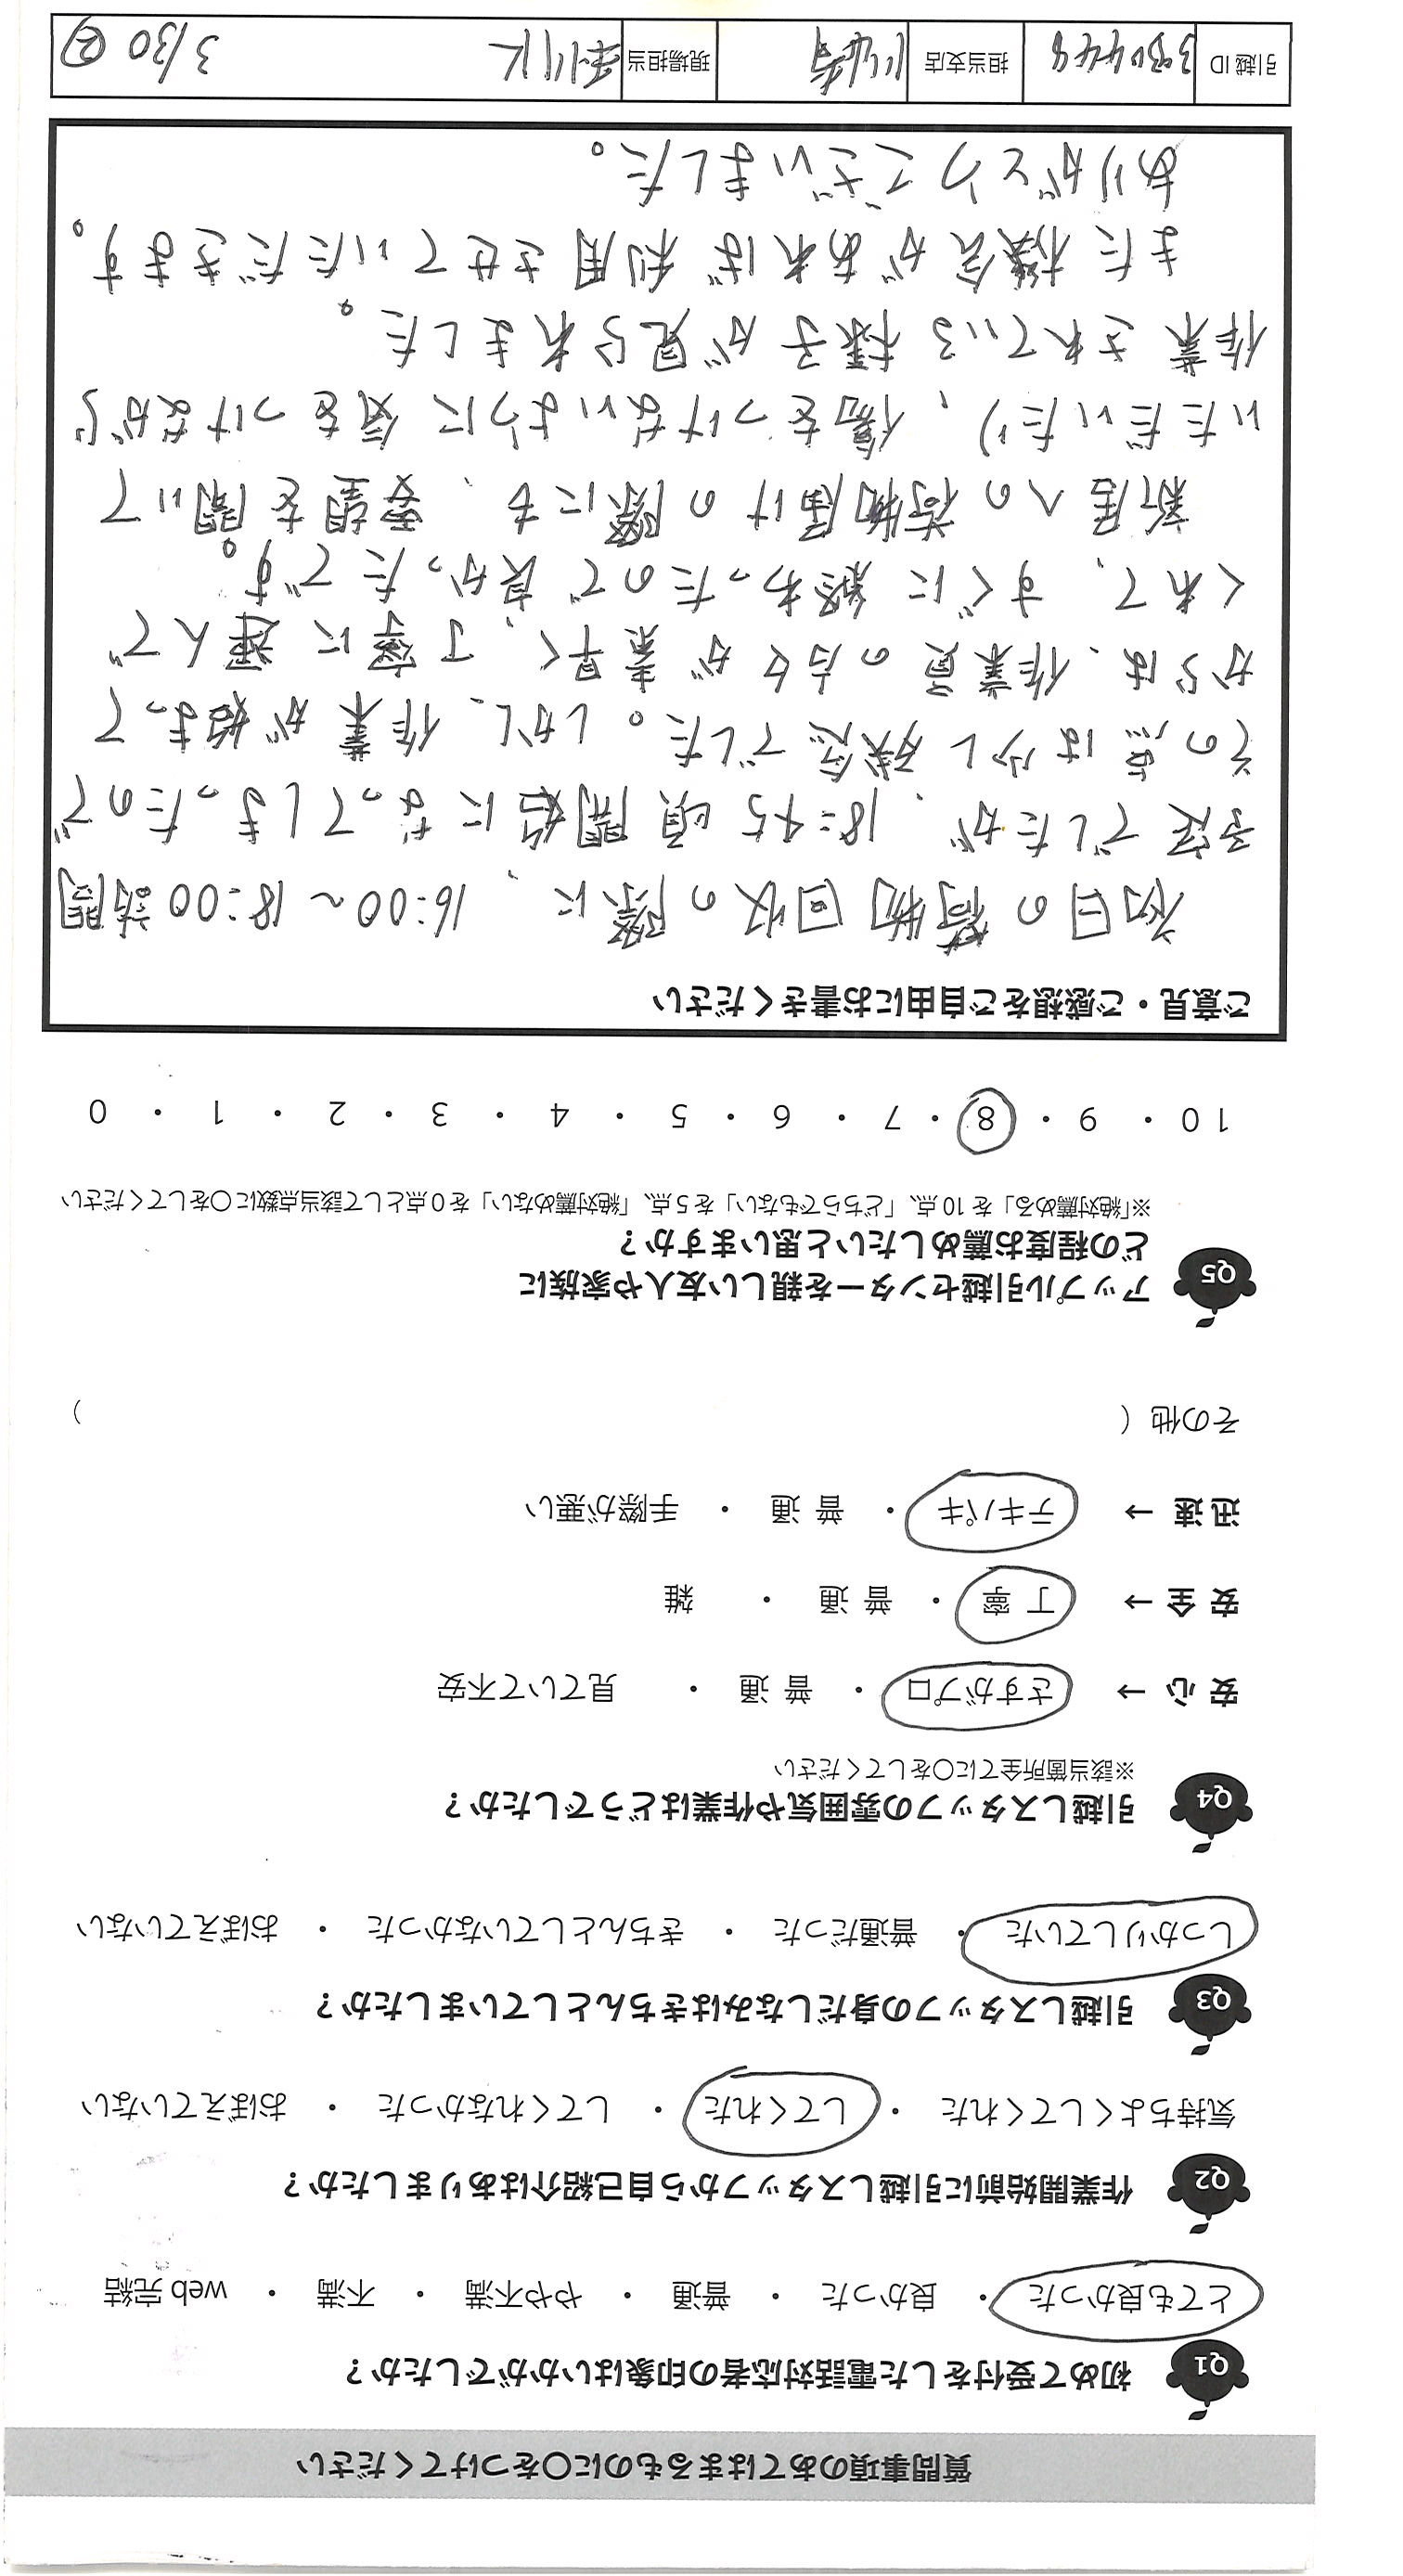 質問事項のあてはまるものに〇をつけてください
Q1 初めて受付をした電話対応者の印象はいかがでしたか？
とても良かった ・ 良かった ・ 普通 ・ やや不満 ・ 不満 ・ web 完結
Q2 作業開始前に引越しスタッフから自己紹介はありましたか？
気持ちよくしてくれた ・ してくれた ・ してくれなかった ・ おぼえていない
Q3 引越しスタッフの身だしなみはきちんとしていましたか？
しっかりしていた ・ 普通だった ・ きちんとしていなかった ・ おぼえていない
Q4 引越しスタッフの雰囲気や作業はどうでしたか？
※該当箇所全てに〇をしてください
安 心 → さすがプロ ・ 普 通 ・ 見ていて不安
安 全 → 丁 寧 ・ 普 通 ・ 雑
迅 速 → テキパキ ・ 普 通 ・ 手際が悪い
その他（ ）
Q5 アップル引越センターを親しい友人や家族に
どの程度お薦めしたいと思いますか？
※「絶対薦める」を 10 点、「どちらでもない」を 5 点、「絶対薦めない」を 0 点として該当点数に〇をしてください
10 ・ 9 ・ 8 ・ 7 ・ 6 ・ 5 ・ 4 ・ 3 ・ 2 ・ 1 ・ 0
ご意見・ご感想をご自由にお書きください
初日の荷物回収の際に、16:00～18:00訪問
予定でしたが、18:45頃開始になってしまったので
その点は少し残念でした。しかし、作業が始まって
からは、作業員の方々が素早く、丁寧に運んで
くれて、すぐに終わったので良かったです。
新居への荷物届けの際にも、要望を聞いて
いただいたり、傷をつけないように気をつけながら
作業されている様子が見られました。
また機会があれば利用させていただきます。
ありがとうございました。
引越 ID 担当支店 川崎 現場担当 3/30 ②